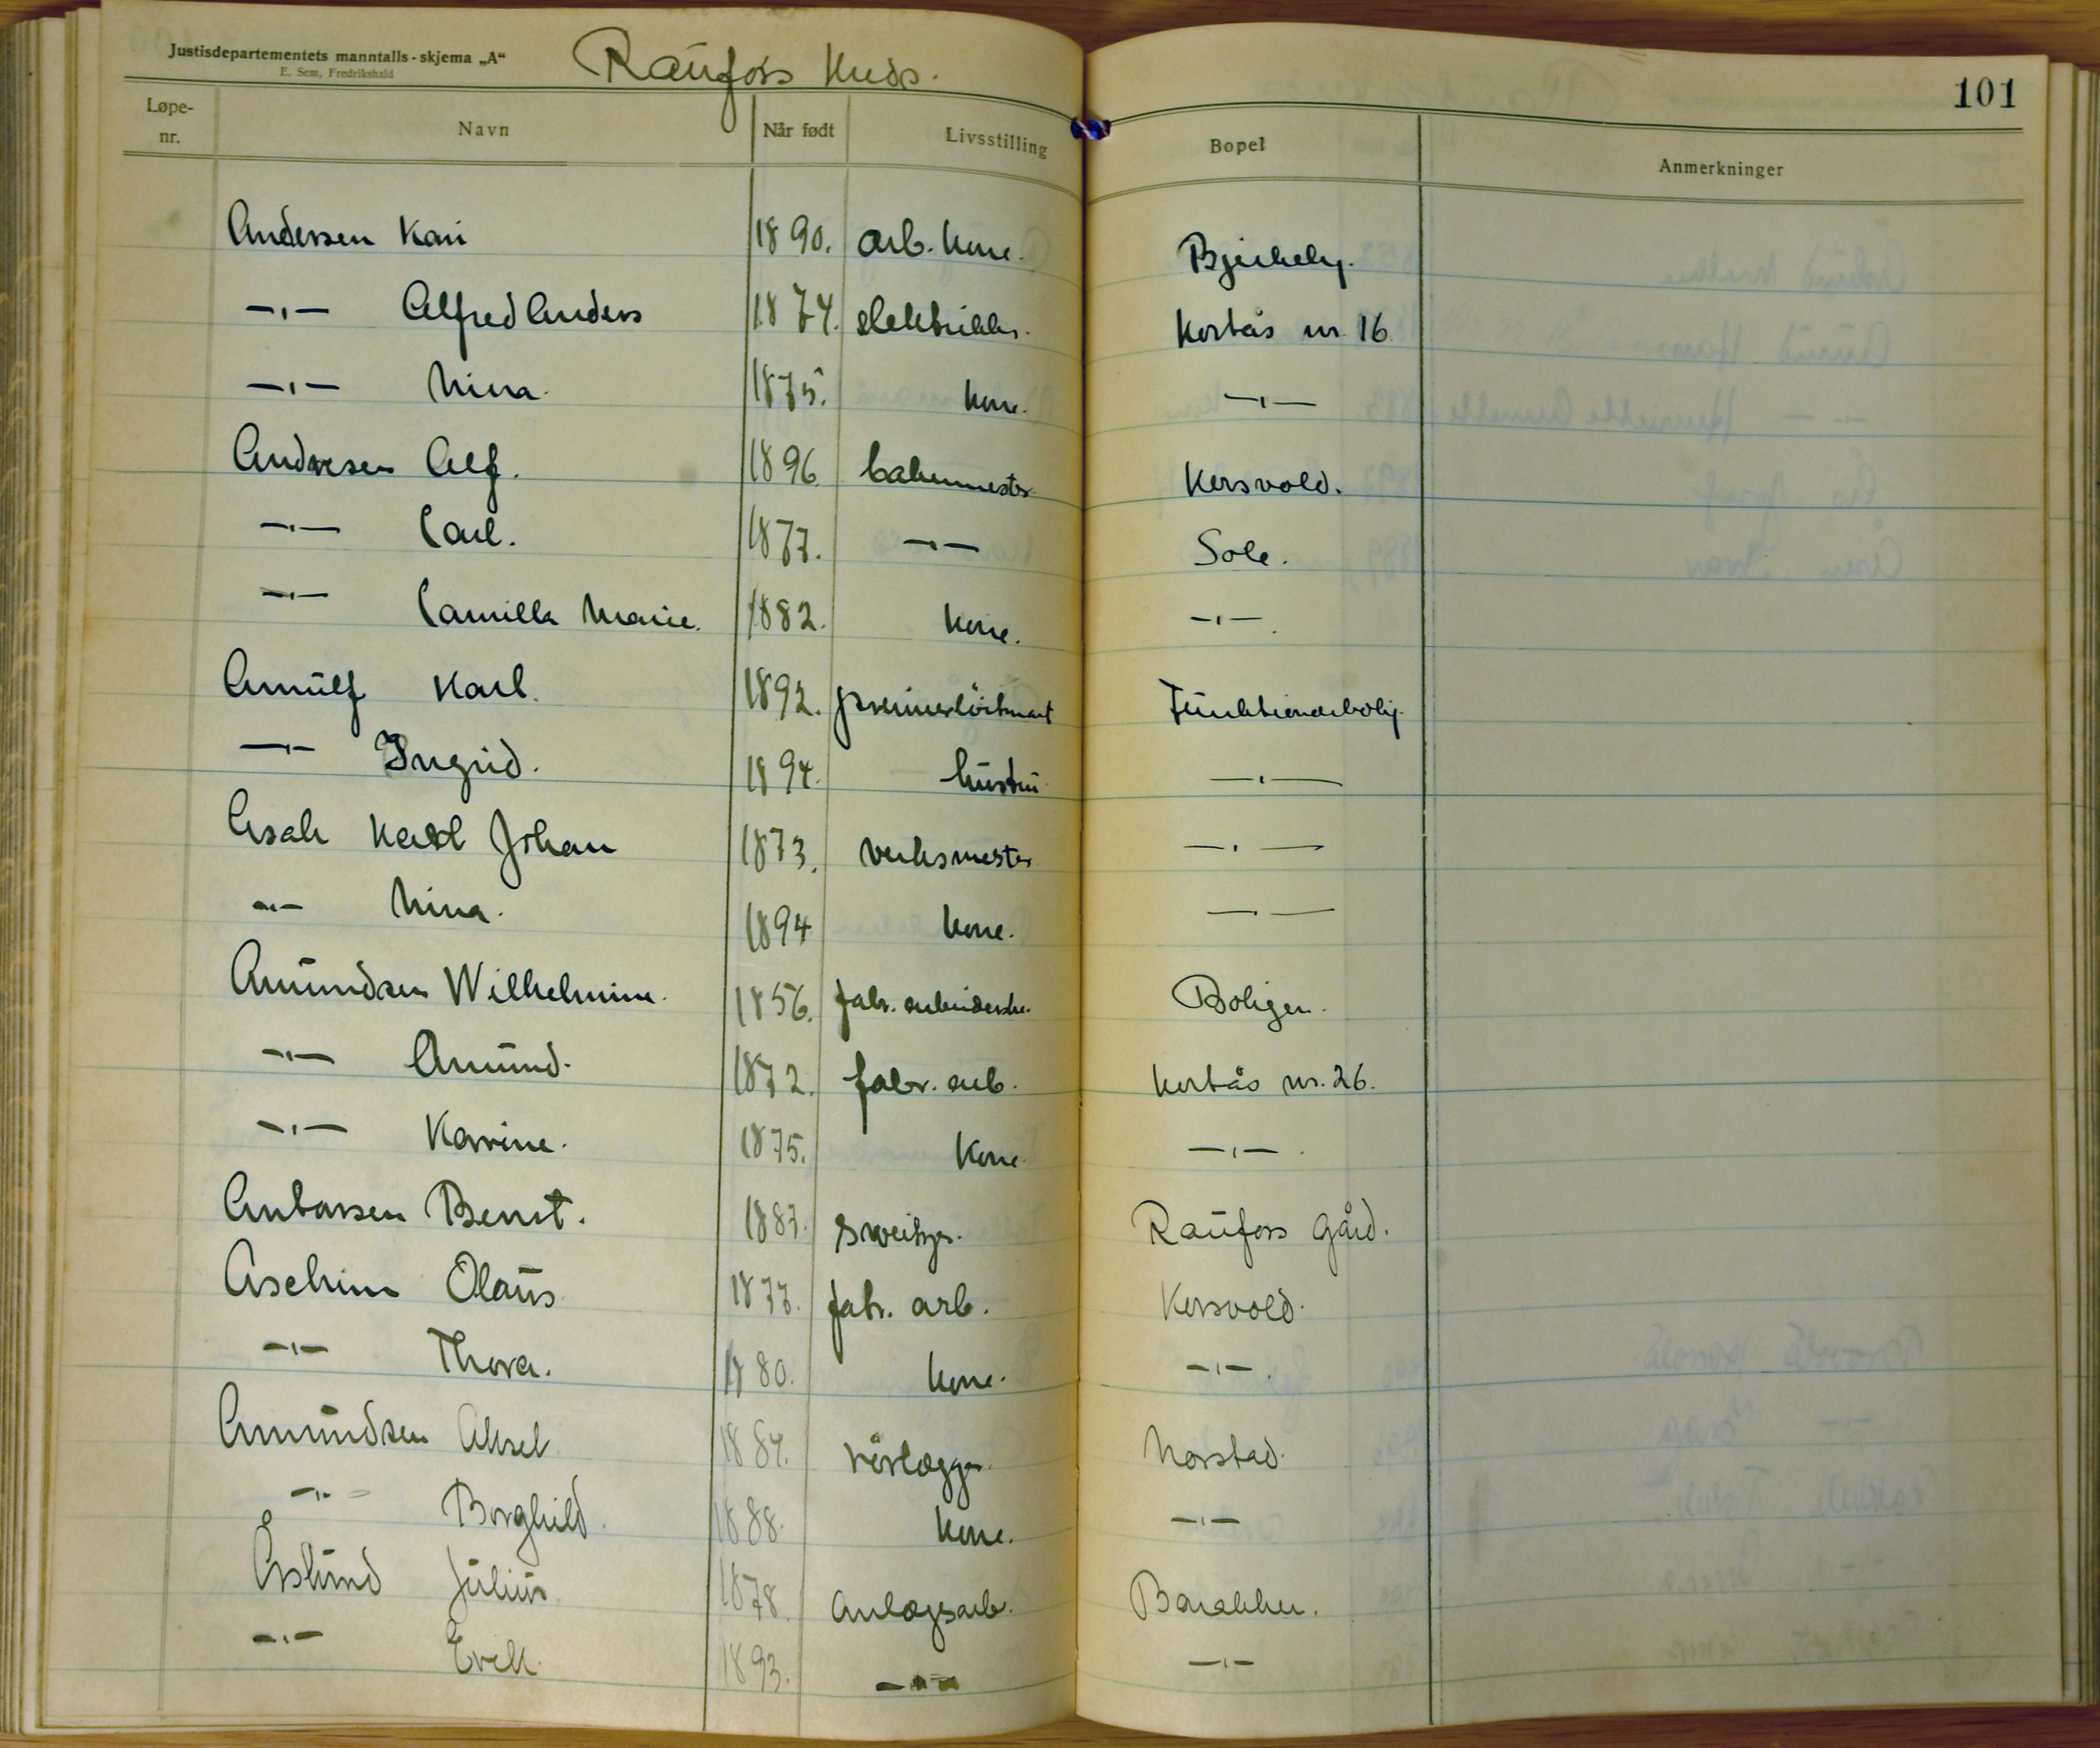 Justisdepartementets manntalls-skjema „A“
E. Sem, Fredrikshald
Raufoss kreds.
101
Løpe-nr. Navn Når født Livsstilling Bopel Anmerkninger
Andersen Kari 1890. arb. kone. Bjerkely.
—„— Alfred Anders 1874. elektriker. Kortås nr. 16
—„— Nina. 1875. kone. —„—
Andresen Alf. 1896 bakermester Kersvold.
—„— Carl. 1877. —„— Sole.
—„— Camilla Marie. 1882. kone. —„—.
Arnulf Karl. 1892. premierløitnant Funktionærbolig.
—„— Ingrid. 1894. hustru —„—
Asak Karl Johan 1873. verksmester —„—
—„— Nina. 1894 kone. —„—
Amundsen Wilhelmine. 1856. fabr. arbeiderske. Boligen.
—„— Amund. 1872. fabr. arb. Kortås nr. 26.
—„— Karine. 1875. Kone —„—.
Bernt. 1887. sveitser. Raufoss gård.
Aschim Olaus 1877. fabr. arb. Kersvold.
—„— Thora. 1880. kone. —„—.
Amundsen Aksel 1884. rørlægger. Norstad.
—„— Borghild. 1888. kone. —„—
Åslund Julius 1878. anlægsarb. Barakker.
—„— 1893. —„— —„—